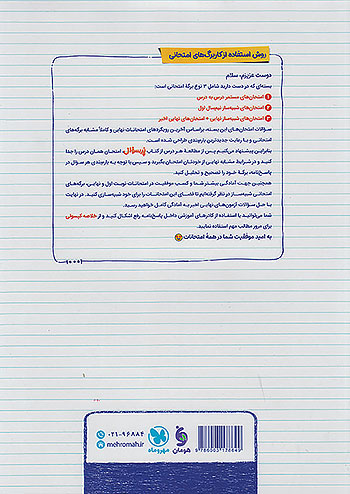 روش استفاده از کاربرگ‌های امتحانی
دوست عزیزم، سلام
بسته‌ای که در دست دارید شامل ۳ نوع برگهٔ امتحانی است:
۱ امتحان‌های مستمر درس به درس
۲ امتحان‌های شبه‌ساز نیمسال اول
۳ امتحان‌های شبه‌ساز نهایی + امتحان‌های نهایی اخیر
سؤالات امتحان‌های این بسته، براساس آخرین رویکردهای امتحانات نهایی و کاملاً مشابه برگه‌های
امتحانی و با رعایت جدیدترین بارم‌بندی طراحی شده است.
بنابراین پیشنهاد می‌کنیم پس از مطالعهٔ هر درس از کتاب پرسؤال، امتحان همان درس را جدا
کنید و در شرایط مشابه نهایی از خودتان امتحان بگیرید و سپس با توجه به بارم‌بندی هر سؤال در
پاسخ‌نامه، برگهٔ خود را تصحیح و تحلیل کنید.
همچنین جهت آمادگی بیشتر شما و کسب موفقیت در امتحانات نوبت اول و نهایی، برگه‌های
امتحانی شبیه‌ساز در نظر گرفته‌ایم تا فضای این امتحانات را برای خود شبیه‌سازی کنید. در نهایت
با حل سؤالات آزمون‌های نهایی اخیر به آمادگی کامل خواهید رسید.
شما می‌توانید با استفاده از کادرهای آموزشی داخل پاسخ‌نامه رفع اشکال کنید و از خلاصه کپسولی
برای مرور مطالب مهم استفاده نمایید.
به امید موفقیت شما در همهٔ امتحانات
۰۲۱-۹۶۸۸۴
mehromah.ir
مهروماه
هومان